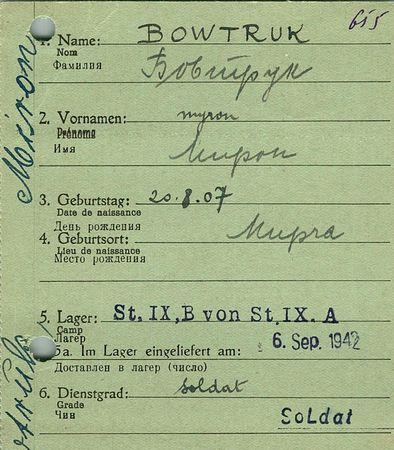 615
1. Name: BOWTRUK
Nom
Фамилия Бовтрук
2. Vornamen: myron
Prénoms
Имя Мирон
3. Geburtstag: 20.8.07
Date de naissance
День рождения
4. Geburtsort: Мирча
Lieu de naissance
Место рождения
5. Lager: St. IX, B von St. IX. A
Camp
Лагер
5a. Im Lager eingeliefert am: 6. Sep. 1942
Доставлен в лагер (число)
6. Dienstgrad: Soldat
Grade
Чин Soldat